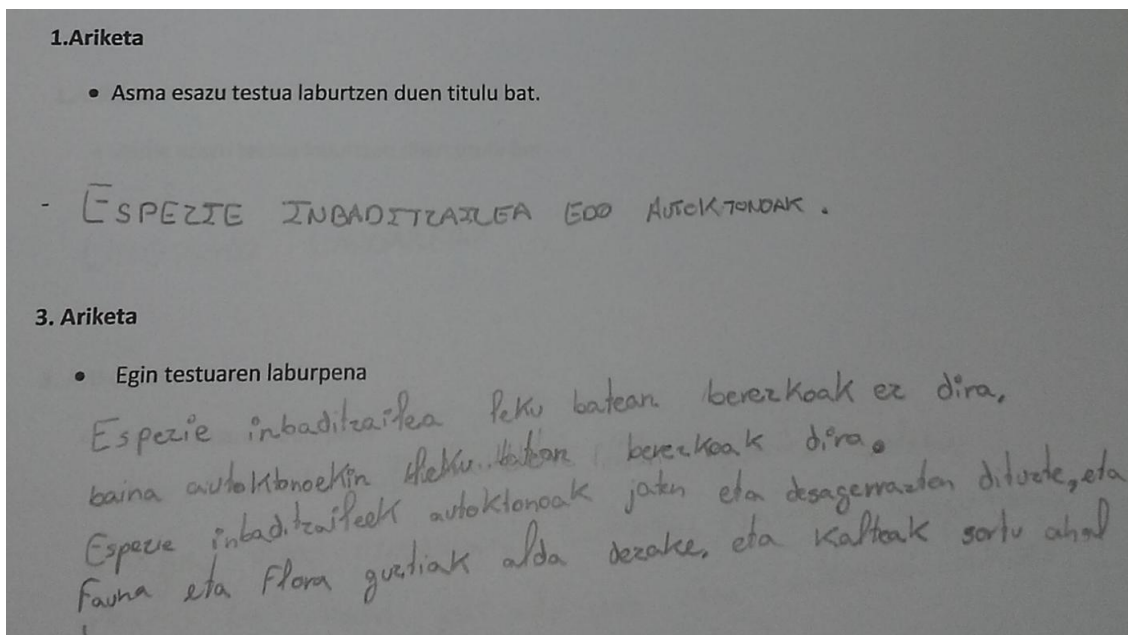 1.Ariketa
• Asma esazu testua laburtzen duen titulu bat.
- ESPEZIE INBADITZAILEA EDO AUTOKTONOAK.
3. Ariketa
• Egin testuaren laburpena
Espezie inbaditzailea leku batean berezkoak ez dira,
baina autoktonoekin leku batean berezkoak dira.
Espezie inbaditzaileek autoktonoak jaten eta desagerrazten dituzte, eta
fauna eta Flora guztiak alda dezake, eta kalteak sortu ahal